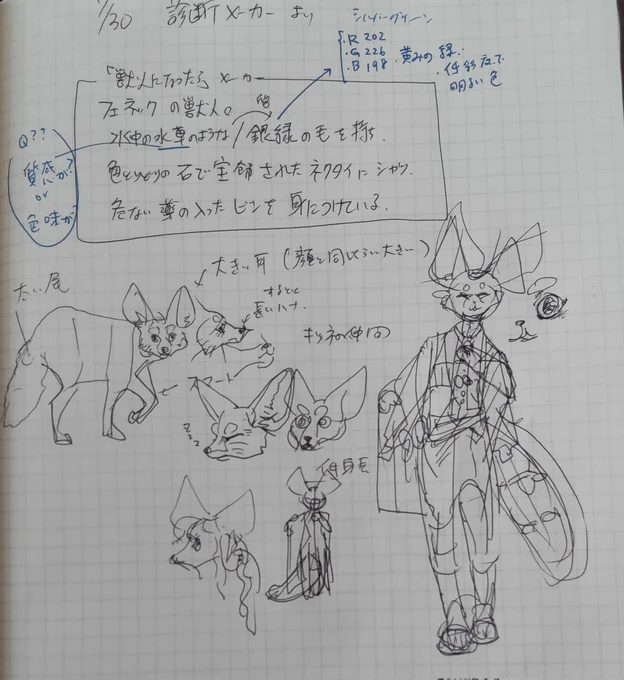 1/30 診断メーカーより
シルバーグリーン
・R 202
・G 226
・B 198
・黄みの緑
・低彩度で明るい色
「獣人になったら」メーカー
フェネックの獣人。
水中の水草のような/銀緑の毛を持ち、
色とりどりの石で宝飾されたネクタイにシャツ。
危ない薬の入ったビンを身につけている。
Q??
質感が?
or
色味が
大きい耳(顔と同じくらい大きい)
太い尾
するどく
長いハナ
キツネの仲間
スマート
zzz
低身長